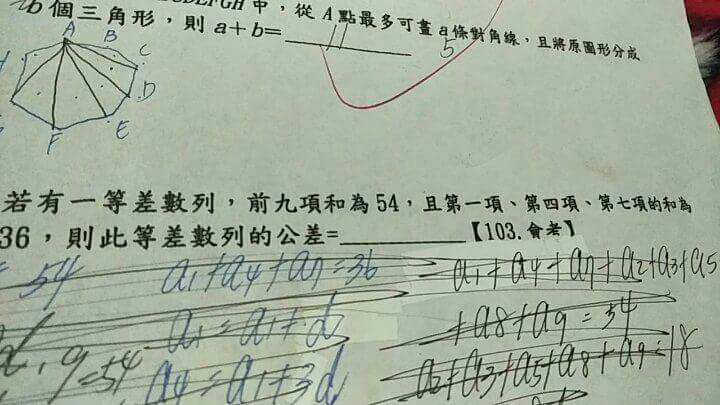 中，從A點最多可畫a條對角線，且將原圖形分成
b個三角形，則a+b=
11
5
A
B
C
D
E
F
H
若有一等差數列，前九項和為54，且第一項、第四項、第七項的和為
36，則此等差數列的公差=【103.會考】
=54 a1+a4+a7=36 =a1+a4+a7+a2+a3+a5
a1=a1+d +a8+a9=54
9=54 a4=a1+3d a2+a3+a5+a8+a9=18